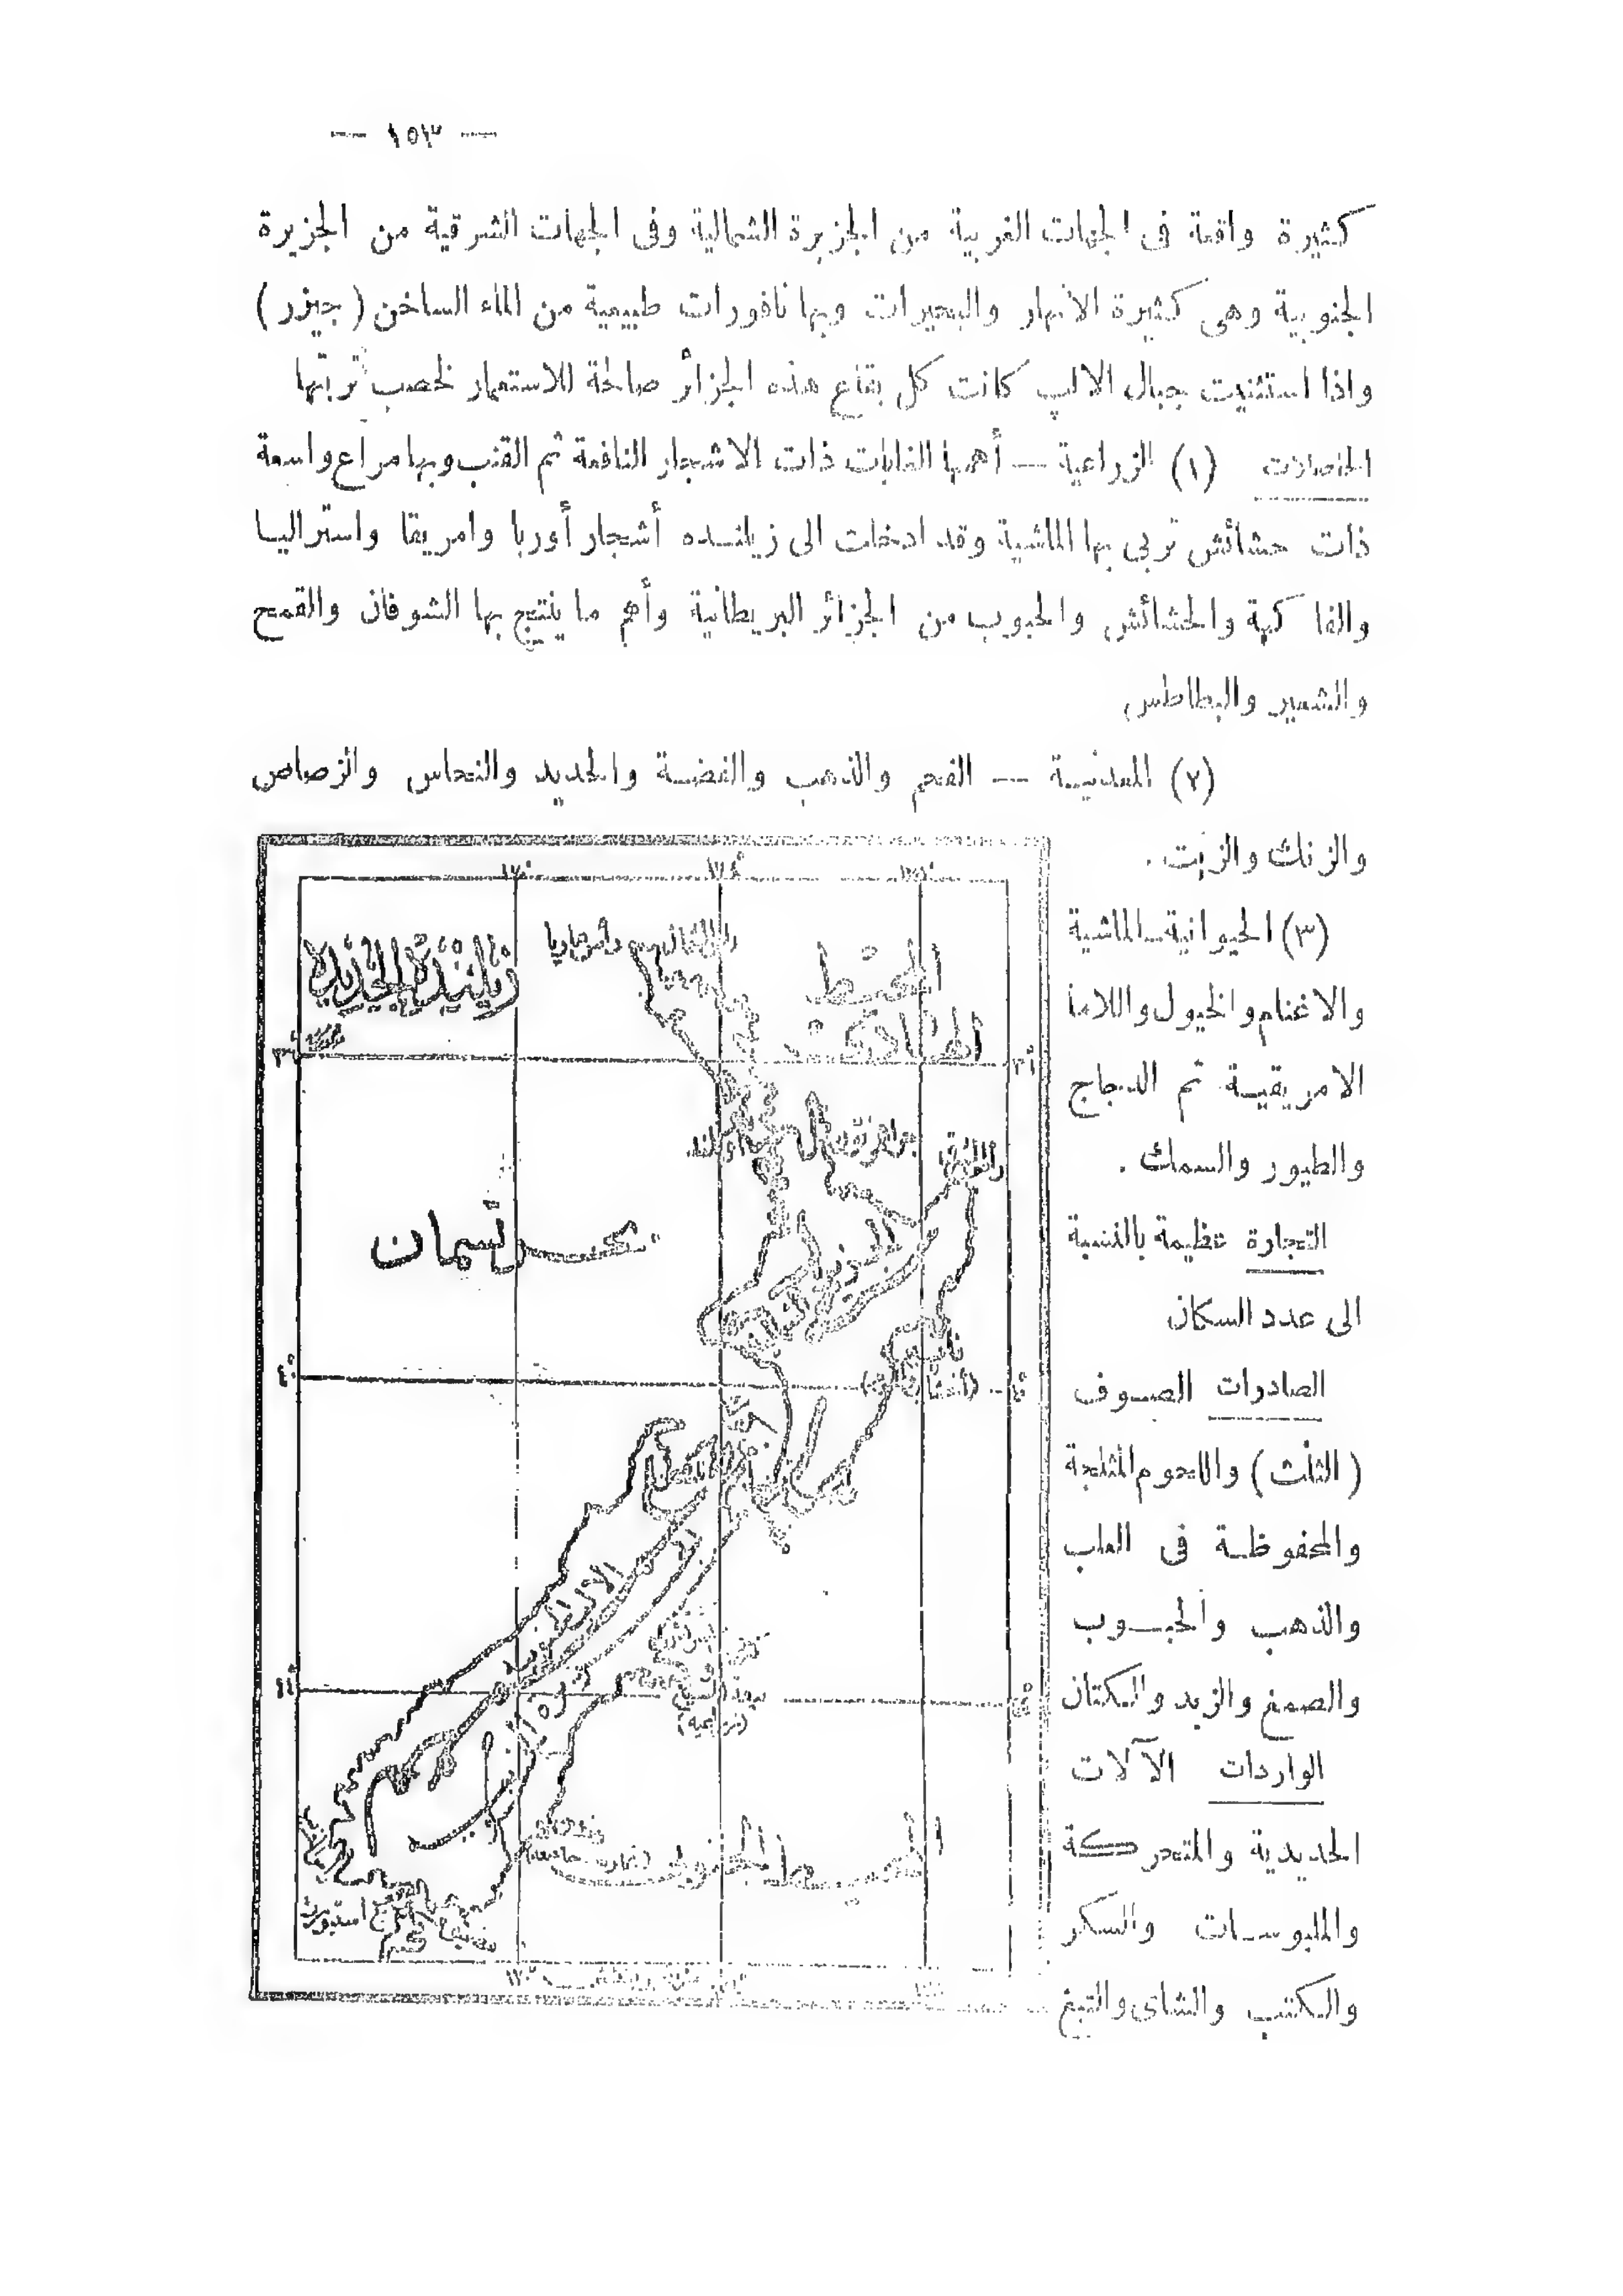 — ١٥٣ —
كثيرة واقعة فى الجهات الغربية من الجزيرة الشمالية وفى الجهات الشرقية من الجزيرة
الجنوبية وهى كثيرة الانهار والبحيرات وبها نافورات طبيعية من الماء الساخن ( جيزر )
واذا استثنيت جبال الالب كانت كل بقاع هذه الجزائر صالحة للاستعمار لخصب تربتها
الحاصلات (١) الزراعية — أهمها الغابات ذات الاشجار النافعة ثم القنب وبها مراع واسعة
ذات حشائش تربى بها الماشية وقد ادخلت الى زيلنده أشجار أوربا وامريقا واستراليا
والفاكهة والحشائش والحبوب من الجزائر البريطانية وأهم ما ينتج بها الشوفان والقمح
والشعير والبطاطس
(٢) المعدنية — الفحم والذهب والفضة والحديد والنحاس والرصاص
والزنك والزيت .
(٣) الحيوانية ـ الماشية
والاغنام والخيول واللاما
الامريقية ثم الدجاج
والطيور والسمك .
التجارة عظيمة بالنسبة
الى عدد السكان
الصادرات الصوف
( الثلث ) واللحوم المثلجة
والمحفوظة فى العلب
والذهب والحبوب
والصمغ والزبد والكتان
الواردات الآلات
الحديدية والمتحركة
والملبوسات والسكر
والكتب والشاى والتبغ
زيلندة الجديدة
المحيط
الهادى
بحر تسمان
الجزيرة الشمالية
المحيط الجنوبى